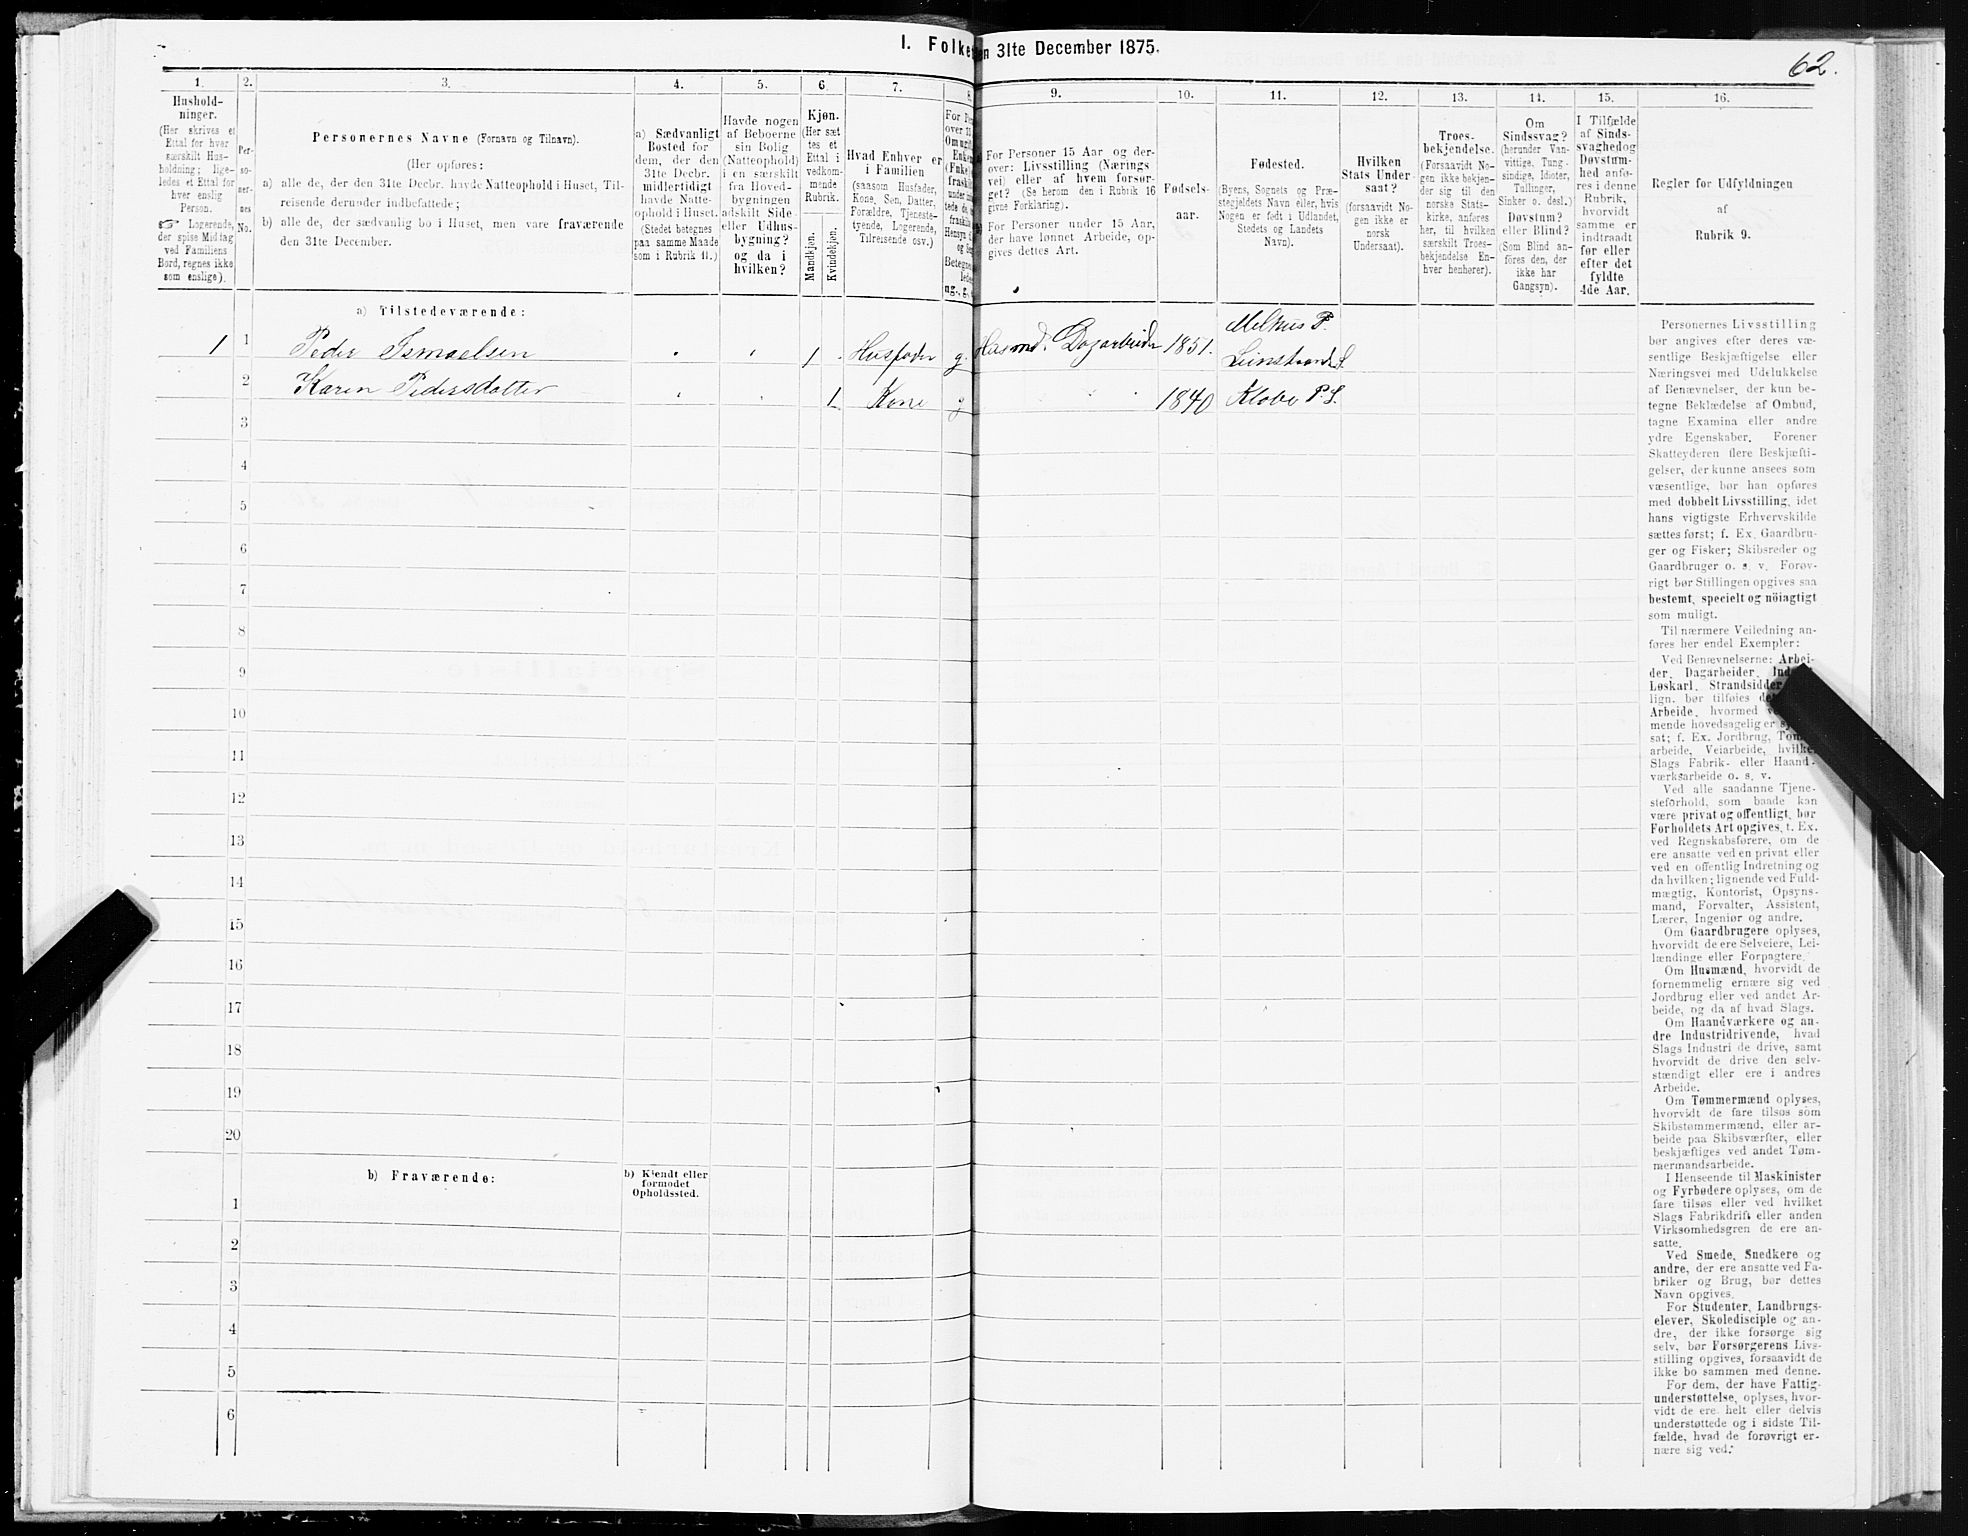 I. Folke
en 31te December 1875.
62.
1.
2.
3.
4.
5.
6.
7.
8.
9.
10.
11.
12.
13.
14.
15.
16.
Hushold-
ninger.
(Her skrives et
Ettal for hver
særskilt Hus-
holdning; lige-
ledes et Ettal for
hver enslig
Person.
☞ Logerende,
der spise Middag
ved Familiens
Bord, regnes ikke
som enslige).
Per-
so-
ner-
nes
No.
Personernes Navne (Fornavn og Tilnavn).
(Her opføres:
a) alle de, der den 31te Decbr. havde Natteophold i Huset, Til-
reisende derunder indbefattede;
b) alle de, der sædvanlig bo i Huset, men vare fraværende
den 31te December.
a) Sædvanligt
Bosted for
dem, der den
31te Decbr.
midlertidigt
havde Natte-
ophold i Huset.
(Stedet betegnes
paa samme Maade
som i Rubrik 11.)
Havde nogen
af Beboerne
sin Bolig
(Natteophold)
i en særskilt
fra Hoved-
bygningen
adskilt Side-
eller Udhus-
bygning?
og da i
hvilken?
Kjøn.
(Her sæt-
tes et
Ettal i
vedkom-
mende
Rubrik.
Mandkjøn.
Kvindekjøn.
Hvad Enhver er
i Familien
(saasom Husfader,
Kone, Søn, Datter,
Forældre, Tjeneste-
tyende, Logerende,
Tilreisende osv.)
For Personer 15 Aar og der-
over: Livsstilling (Nærings-
vei) eller af hvem forsør-
get? (Se herom den i Rubrik 16
givne Forklaring).
For Personer under 15 Aar,
der have lønnet Arbeide, op-
gives dettes Art.
Fødsels-
aar.
Fødested.
(Byens, Sognets og Præ-
stegjeldets Navn eller, hvis
Nogen er født i Udlandet,
Stedets og Landets
Navn).
Hvilken
Stats Under-
saat?
(forsaavidt No-
gen ikke er
norsk
Undersaat).
Troes-
bekjendelse.
(Forsaavidt No-
gen ikke bekjen-
der sig til den
norske Stats-
kirke, anføres
her, til hvilken
særskilt Troes-
bekjendelse En-
hver henhører).
Om
Sindssvag?
(herunder Van-
vittige, Tung-
sindige, Idioter,
Tullinger,
Sinker o. desl.)
Døvstum?
eller Blind?
(Som Blind an-
føres den, der
ikke har
Gangsyn).
I Tilfælde
af Sinds-
svaghed og
Døvstum-
hed anfø-
res i denne
Rubrik,
hvorvidt
samme er
indtraadt
før eller
efter det
fyldte
4de Aar.
Regler for Udfyldningen
af
Rubrik 9.
a) Tilstedeværende:
1 1 Peder Ismaelsen 1 Husfader g. Husmd. Dagarbeider 1851. Melhus P.
Leinstrand S.
2 Karen Pedersdatter 1 Kone g 1840 Klæbu P. S.
3
4
5
6
7
8
9
10
11
12
13
14
15
16
17
18
19
20
b) Fraværende:
b) Kjendt eller
formodet
Opholdssted.
1
2
3
4
5
6
Personernes Livsstilling
bør angives efter deres væ-
sentlige Beskjæftigelse eller
Næringsvei med Udelukkelse
af Benævnelser, der kun be-
tegne Beklædelse af Ombud,
tagne Examina eller andre
ydre Egenskaber. Forener
Skatteyderen flere Beskjæfti-
gelser, der kunne ansees som
væsentlige, bør han opføres
med dobbelt Livsstilling, idet
hans vigtigste Erhvervskilde
sættes først; f. Ex. Gaardbru-
ger og Fisker; Skibsreder og
Gaardbruger o. s. v. Forøv-
rigt bør Stillingen opgives saa
bestemt, specielt og nöiagtigt
som muligt.
Til nærmere Veiledning an-
føres her endel Exempler:
Ved Benævnelserne: Arbei-
der, Dagarbeider,
Løskarl, Strandsidder
lign. bør tilføies
Arbeide, hvormed
mende hovedsagelig er
sat; f. Ex. Jordbrug,
arbeide, Veiarbeide, hvilket
Slags Fabrik- eller Haand-
værksarbeide o. s. v.
Ved alle saadanne Tjene-
steforhold, som baade kan
være privat og offentligt, bør
Forholdets Art opgives, t. Ex.
ved Regnskabsførere, om de
ere ansatte ved en privat eller
ved en offentlig Indretning og
da hvilken; lignende ved Fuld-
mægtig, Kontorist, Opsyns-
mand, Forvalter, Assistent,
Lærer, Ingeniør og andre.
Om Gaardbrugere oplyses,
hvorvidt de ere Selveiere, Lei-
lændinge eller Forpagtere.
Om Husmænd, hvorvidt de
fornemmelig ernære sig ved
Jordbrug eller ved andet Ar-
beide, og da af hvad Slags.
Om Haandværkere og an-
dre Industridrivende, hvad
Slags Industri de drive, samt
hvorvidt de drive den selv-
stændigt eller ere i andres
Arbeide.
Om Tømmermænd oplyses,
hvorvidt de fare tilsøs som
Skibstømmermænd, eller ar-
beide paa Skibsværfter, eller
beskjæftiges ved andet Tøm-
mermandsarbeide.
I Henseende til Maskinister
og Fyrbødere oplyses, om de
fare tilsøs eller ved hvilket
Slags Fabrikdrift eller anden
Virksomhedsgren de ere an-
satte.
Ved Smede, Snedkere og
andre, der ere ansatte ved Fa-
briker og Brug, bør dettes
Navn opgives.
For Studenter, Landbrugs-
elever, Skoledisciple og an-
dre, der ikke forsørge sig
selv, bør Forsørgerens Livs-
stilling opgives, forsaavidt de
ikke bo sammen med denne.
For dem, der have Fattig-
understøttelse, oplyses, hvor-
vidt de ere helt eller delvis
understøttede og i sidste Til-
fælde, hvad de forøvrigt er-
nære sig ved.